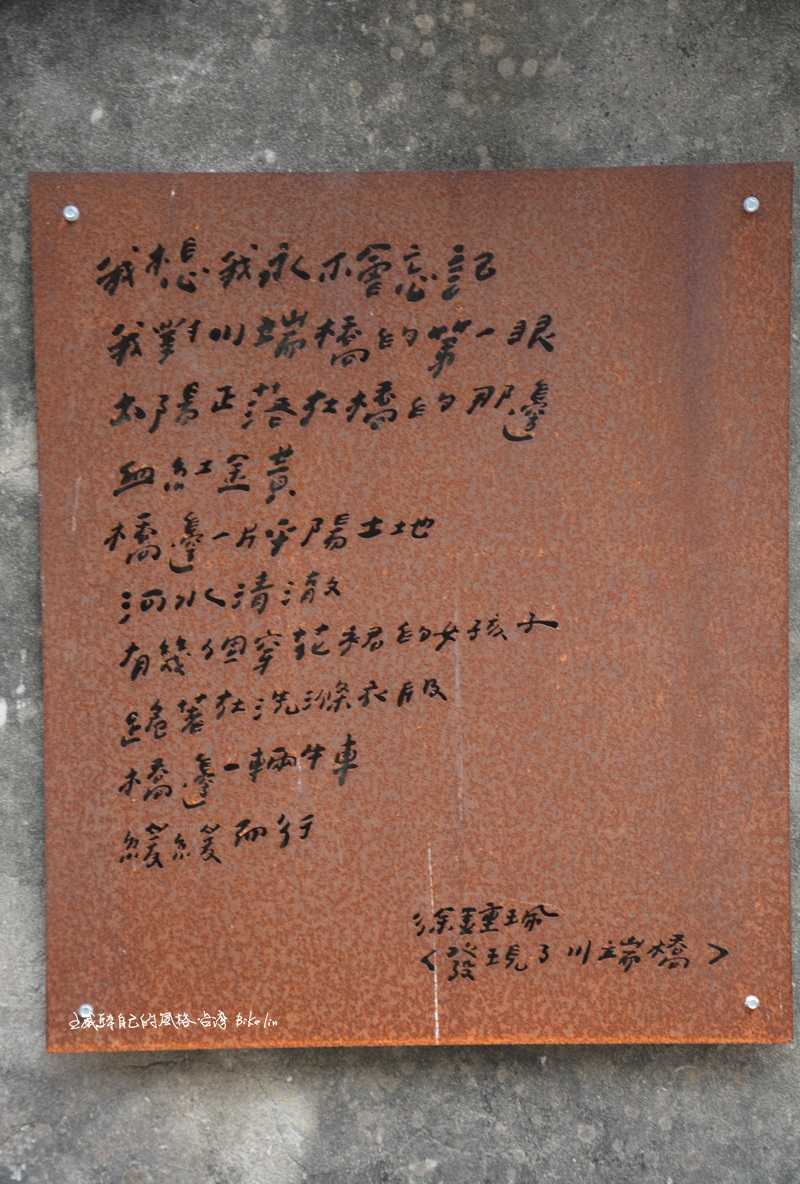 我想我永不會忘記
我對川端橋的第一眼
太陽正落在橋的那邊
血紅金黃
橋邊一片平陽土地
河水清澈
有幾個穿花裙的女孩子
跪著在洗滌衣服
橋邊一輛牛車
緩緩而行
徐鍾珮
〈發現了川端橋〉
自己的風格·台湾 Biko lin